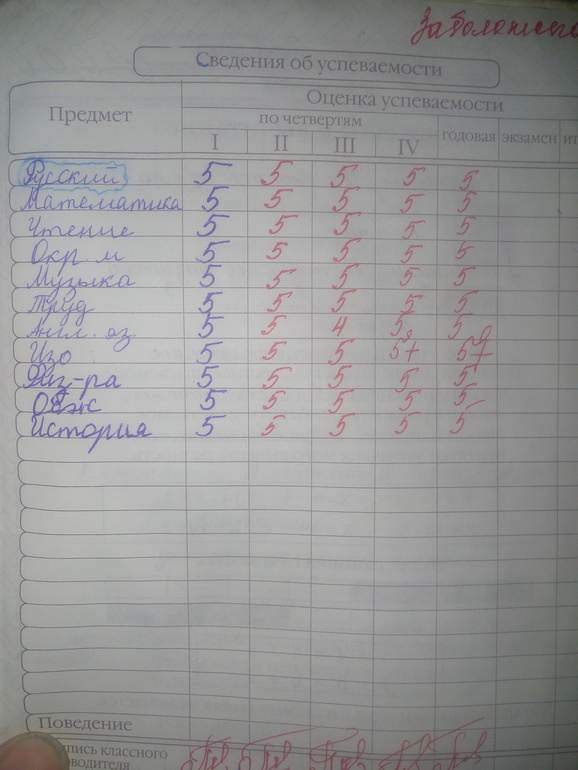 Сведения об успеваемости
Предмет Оценка успеваемости
по четвертям годовая экзамен ит
I II III IV
Русский 5 5 5 5 5
Математика 5 5 5 5 5
Чтение 5 5 5 5 5
Окр. м 5 5 5 5 5
Музыка 5 5 5 5 5
Труд 5 5 5 5 5
Англ. яз. 5 5 4 5 5
Изо 5 5 5 5+ 5+
Физ-ра 5 5 5 5 5
ОБЖ 5 5 5 5 5
История 5 5 5 5 5
Поведение
пись классного
водителя